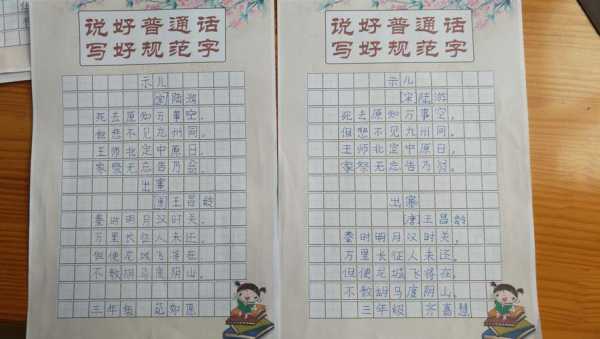 说好普通话
写好规范字
示儿
[宋]陆游
死去原知万事空,
但悲不见九州同。
王师北定中原日,
家祭无忘告乃翁。
出塞
[唐]王昌龄
秦时明月汉时关,
万里长征人未还。
但使龙城飞将在,
不教胡马度阴山。
三年级 范如愿
说好普通话
写好规范字
示儿
[宋]陆游
死去原知万事空,
但悲不见九州同。
王师北定中原日,
家祭无忘告乃翁。
出塞
[唐]王昌龄
秦时明月汉时关,
万里长征人未还。
但使龙城飞将在,
不教胡马度阴山。
三年级 嘉慧